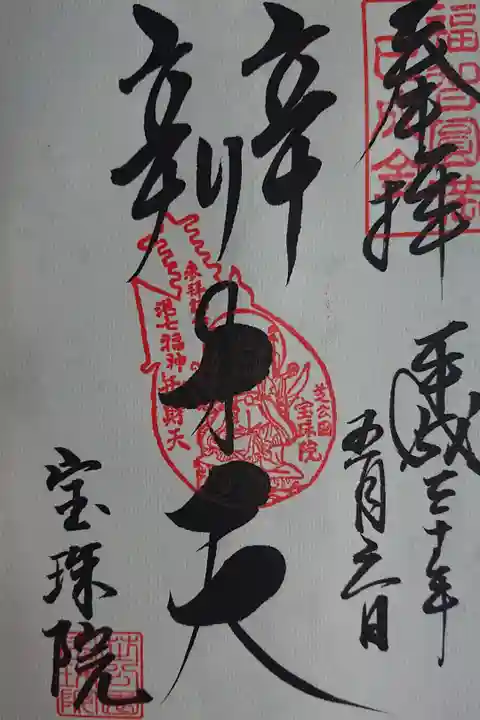 奉拝
平成三十年
五月六日
辨才天
港七福神
弁財天
芝公園
宝珠院
宝珠院